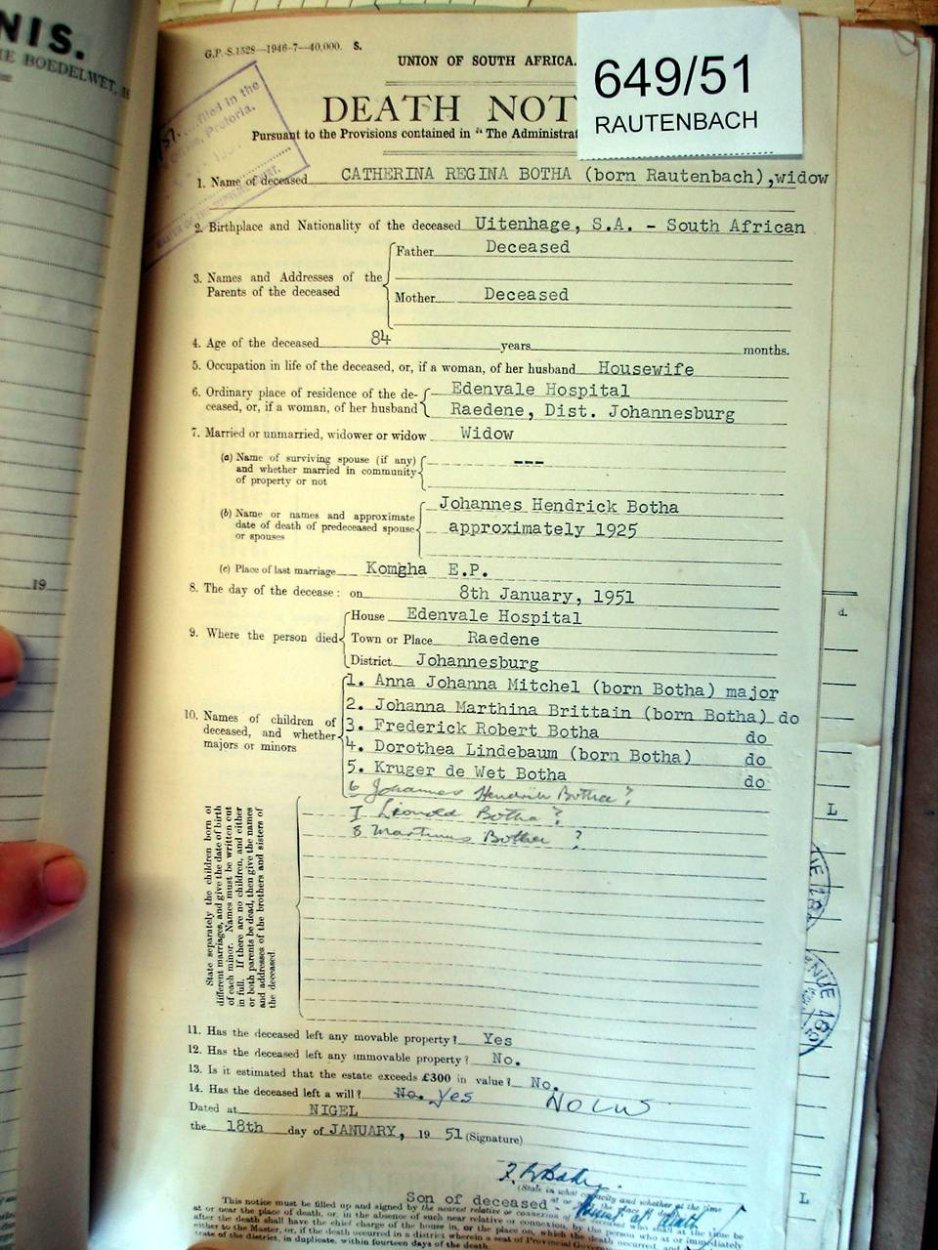 NIS.
IE BOEDELWET,
19
G.P.-S.1528—1946-7—40,000. S.
UNION OF SOUTH AFRICA.
649/51
RAUTENBACH
filed in the
Pretoria.
DEATH NOT
Pursuant to the Provisions contained in "The Administrat
1. Name of deceased CATHERINA REGINA BOTHA (born Rautenbach),widow
2. Birthplace and Nationality of the deceased Uitenhage, S.A. - South African
3. Names and Addresses of the Parents of the deceased
Father Deceased
Mother Deceased
4. Age of the deceased 84 years months.
5. Occupation in life of the deceased, or, if a woman, of her husband Housewife
6. Ordinary place of residence of the de- Edenvale Hospital
ceased, or, if a woman, of her husband Raedene, Dist. Johannesburg
7. Married or unmarried, widower or widow Widow
(a) Name of surviving spouse (if any) ---
and whether married in community
of property or not
(b) Name or names and approximate Johannes Hendrick Botha
date of death of predeceased spouse approximately 1925
or spouses
(c) Place of last marriage Komgha E.P.
8. The day of the decease: on 8th January, 1951
9. Where the person died
House Edenvale Hospital
Town or Place Raedene
District Johannesburg
10. Names of children of deceased, and whether majors or minors
1. Anna Johanna Mitchel (born Botha) major
2. Johanna Marthina Brittain (born Botha) do
3. Frederick Robert Botha do
4. Dorothea Lindebaum (born Botha) do
5. Kruger de Wet Botha do
6 Johannes Hendrik Botha?
7 Leonard Botha?
8 Martinus Botha ?
State separately the children born of
different marriages, and give the date of birth
of each minor. Names must be written out
in full. If there are no children, and either
or both parents be dead, then give the names
and addresses of the brothers and sisters of
the deceased
11. Has the deceased left any movable property? Yes
12. Has the deceased left any immovable property? No.
13. Is it estimated that the estate exceeds £300 in value? No.
14. Has the deceased left a will? No. Yes
Dated at NIGEL
the 18th day of JANUARY, 19 51 (Signature)
Son of deceased
(State in what capacity and whether at the time
This notice must be filled up and signed by the nearest relative or connexion of the
at or near the place of death, or, in the absence of such near relative or connexion,
after the death shall have the chief charge of the house in, or the place on, which the death occurred
either to the Master, or, if the death occurred in a district wherein a seat of Provincial
trate of the district, in duplicate, within fourteen days of the death
d.
L
L